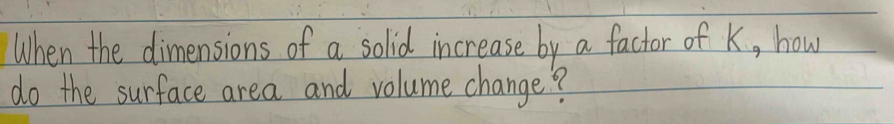 When the dimensions of a solid increase by a factor of K, how
do the surface area and volume change?